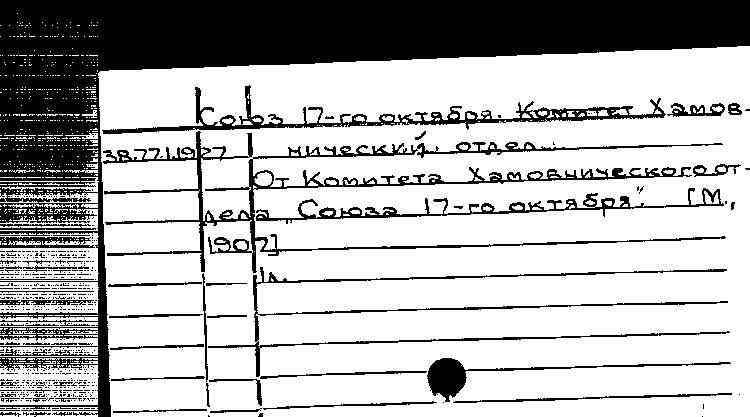 Союз 17-го октября. Комитет Хамов-
38.77.1.1927 нический отдел.
От Комитета Хамовнического от-
дела "Союза 17-го октября". [М.,
1907]
1л.